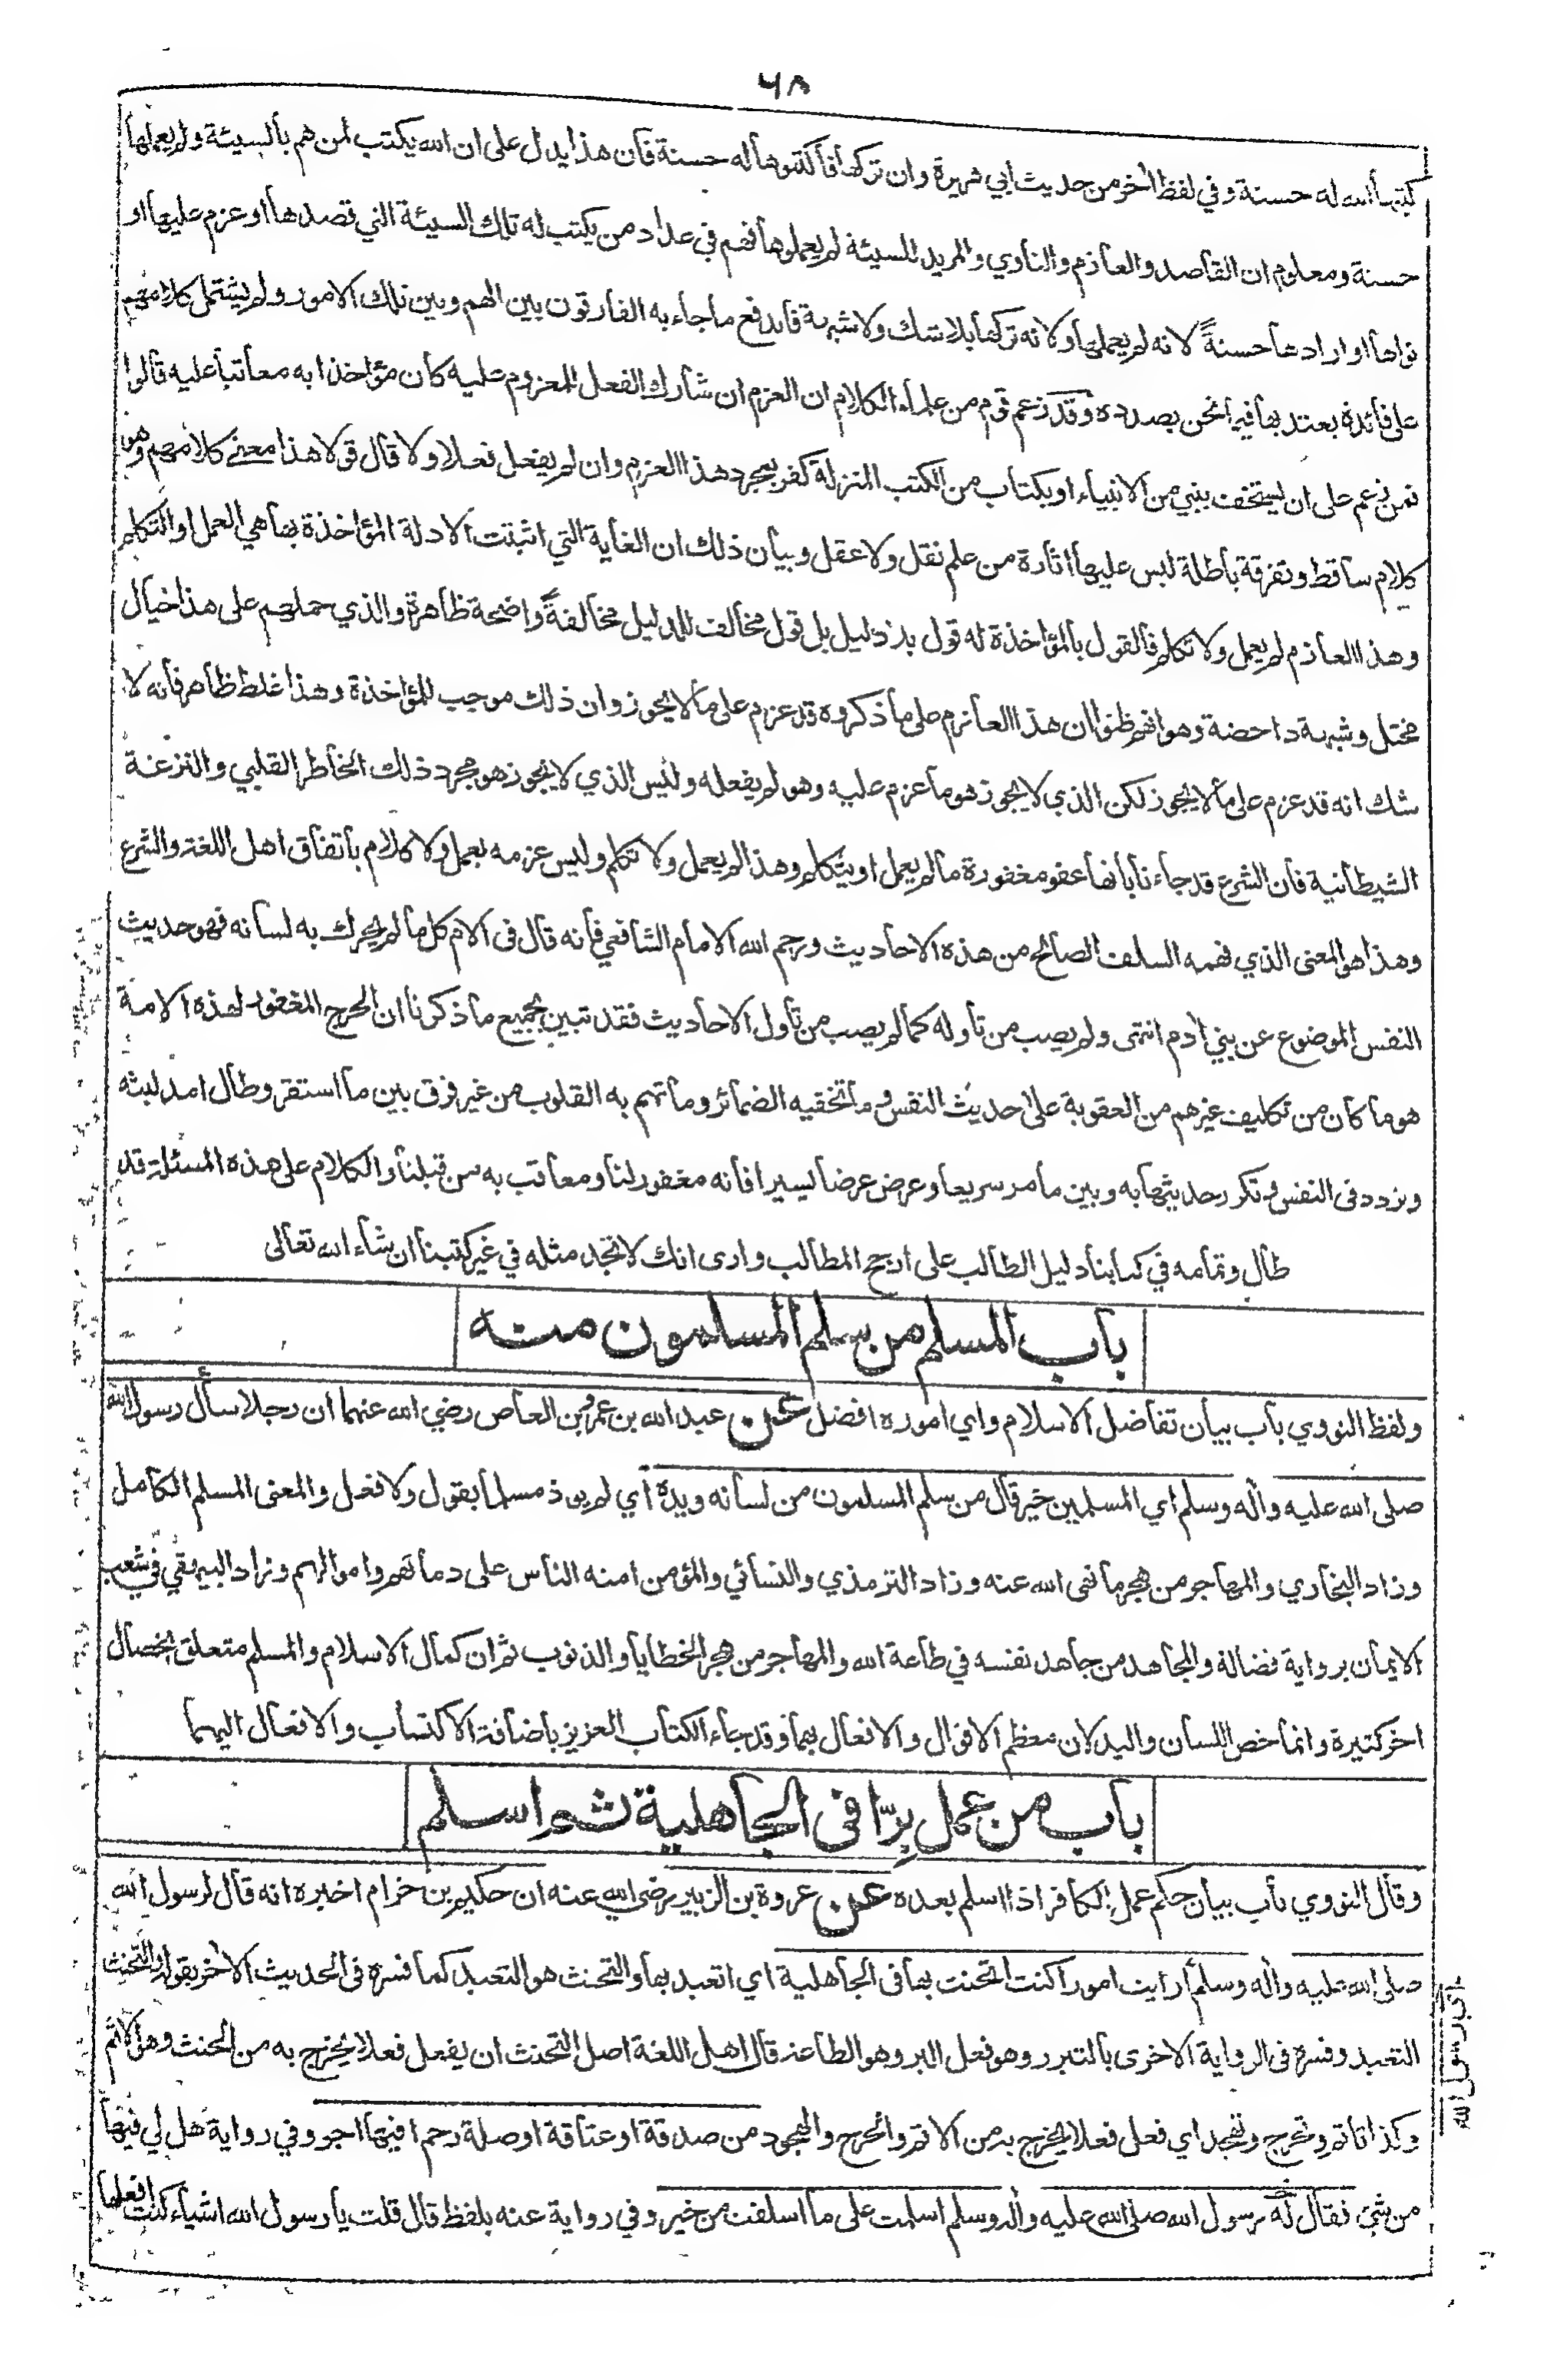 ٦٨
كتبها الله له حسنة وفي لفظ اخر من حديث ابي هريرة وان تركها فاكتبوها له حسنة فان هذا يدل على ان الله يكتب لمن هم بالسيئة ولم يعملها
حسنة ومعلوم ان القاصد والعازم والناوي والمريد للسيئة لم يعملوها فهم في عداد من يكتب له تلك السيئة التي قصدها او عزم عليها او
نواها او ارادها حسنةً لانه لم يعملها ولانه تركها بلا شك ولا شبهة فاندفع ما جاء به الفارقون بين الهم وبين تلك الامور ولم يشتمل كلامهم
على فائدة يعتد بها فيما نحن بصدده وقد زعم قوم من علماء الكلام ان العزم ان شارك الفعل المعزوم عليه كان مؤاخذا به معاتبا عليه قالوا
فمن زعم على ان يستخف بنبي من الانبياء او بكتاب من الكتب المنزلة كفر بمجرد هذا العزم وان لم يفعل فعلا ولا قال قولا هذا معنى كلامهم وهو
كلام ساقط وتفرقة باطلة ليس عليها اثارة من علم نقل ولا عقل وبيان ذلك ان الغاية التي اثبتت الادلة المؤاخذة بها هي العمل او التكلم
وهذا العازم لم يعمل ولا تكلم فالقول بالمؤاخذة له قول بلا دليل بل قول مخالف للدليل مخالفةً واضحة ظاهرة والذي حملهم على هذا خيال
مختل وشبهة داحضة وهو انهم ظنوا ان هذا العازم على ما ذكروه قد عزم على ما لا يجوز وان ذلك موجب للمؤاخذة وهذا غلط ظاهر فانه لا
شك انه قد عزم على ما لا يجوز لكن الذي لا يجوز هو ما عزم عليه وهو لم يفعله وليس الذي لا يجوز هو مجرد ذلك الخاطر القلبي والنزغة
الشيطانية فان الشرع قد جاءنا بانها عفو مغفورة ما لم يعمل او يتكلم وهذا لم يعمل ولا تكلم وليس عزمه بعمل ولا كلام باتفاق اهل اللغة والشرع
وهذا هو المعنى الذي فهمه السلف الصالح من هذه الاحاديث ورحم الله الامام الشافعي فانه قال في الام كل ما لم يحرك به لسانه فهو حديث
النفس الموضوع عن بني ادم انتهى ولم يصب من تأوله كما لم يصب من تأول الاحاديث فقد تبين بجميع ما ذكرنا ان الحرج المغفور لهذه الامة
هو ما كان من تكليف غيرهم من العقوبة على حديث النفس وما تخفيه الضمائر وما تهم به القلوب من غير فرق بين ما استقر وطال امد لبثه
وتردد في النفس وتكرر حديثها به وبين ما مر سريعا وعرض عرضا يسيرا فانه مغفور لنا ومعاقب به من قبلنا والكلام على هذه المسئلة قد
طال وتمامه في كتابنا دليل الطالب على ارجح المطالب وارى انك لا تجد مثله في غير كتبنا ان شاء الله تعالى
باب المسلم من سلم المسلمون منه
ولفظ النووي باب بيان تفاضل الاسلام واي اموره افضل عن عبد الله بن عمرو بن العاص رضي الله عنهما ان رجلا سأل رسول الله
صلى الله عليه واله وسلم اي المسلمين خير قال من سلم المسلمون من لسانه ويده اي لم يوذ مسلما بقول ولا فعل والمعنى المسلم الكامل
وزاد البخاري والمهاجر من هجر ما نهى الله عنه وزاد الترمذي والنسائي والمؤمن امنه الناس على دمائهم واموالهم وزاد البيهقي في شعب
الايمان برواية فضالة والمجاهد من جاهد نفسه في طاعة الله والمهاجر من هجر الخطايا والذنوب ثم ان كمال الاسلام والمسلم متعلق بخصال
اخر كثيرة وانما خص اللسان واليد لان معظم الاقوال والافعال بهما وقد جاء الكتاب العزيز باضافة الاكتساب والافعال اليهما
باب من عمل بِرّا في الجاهلية ثم اسلم
وقال النووي باب بيان حكم عمل الكافر اذا اسلم بعده عن عروة بن الزبير رضي الله عنه ان حكيم بن حزام اخبره انه قال لرسول الله
صلى الله عليه واله وسلم أرايت امورا كنت اتحنث بها في الجاهلية اي اتعبد بها والتحنث هو التعبد كما فسره في الحديث الاخر بقوله والتحنث
التعبد وفسره في الرواية الاخرى بالتبرر وهو فعل البر وهو الطاعة قال اهل اللغة اصل التحنث ان يفعل فعلا يخرج به من الحنث وهو الاثم
وكذا تاثم وتحرج وتهجد اي فعل فعلا يخرج به من الاثم والحرج والهجود من صدقة او عتاقة او صلة رحم افيها اجر وفي رواية هل لي فيها
من شيء فقال له رسول الله صلى الله عليه واله وسلم اسلمت على ما اسلفت من خير وفي رواية عنه بلفظ قال قلت يا رسول الله اشياء كنت افعلها
اخبر رسول الله